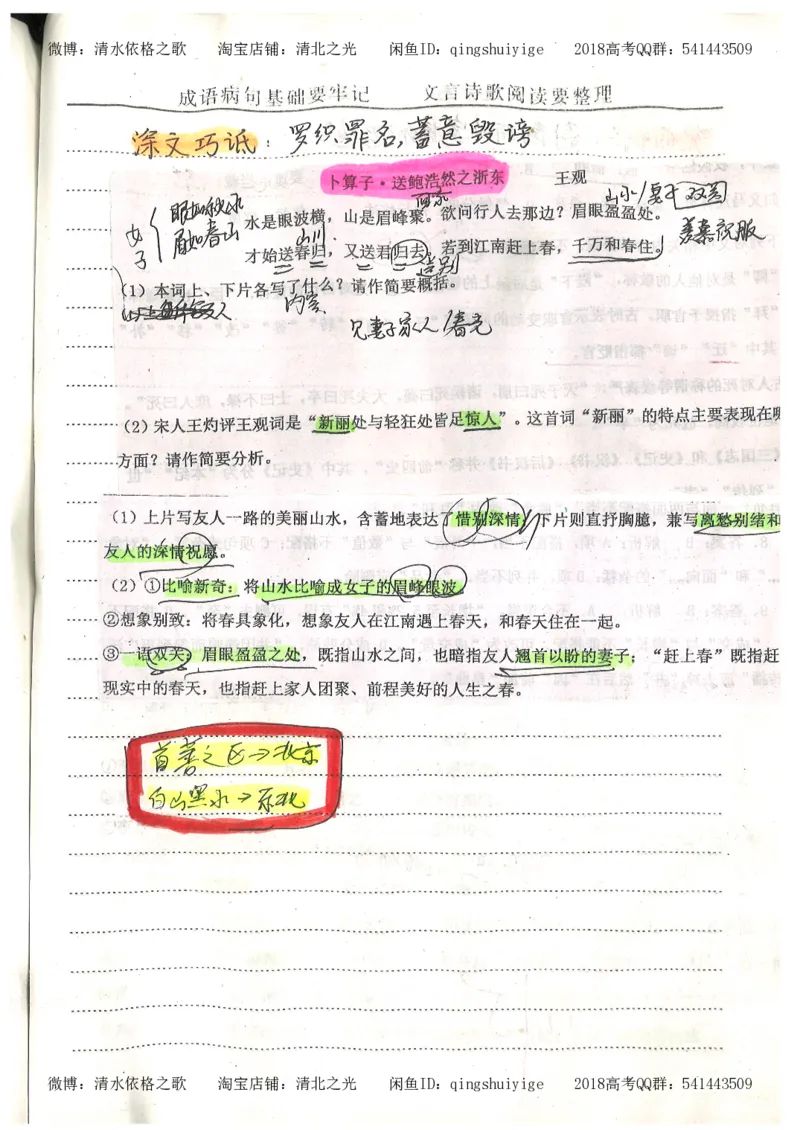 微博：清水依格之歌 淘宝店铺：清北之光 闲鱼ID：qingshuiyige 2018高考QQ群：541443509
成语病句基础要牢记 文言诗歌阅读要整理
深文巧诋：罗织罪名，蓄意毁谤
卜算子·送鲍浩然之浙东 王观
回家
山水/妻子 双关
女子 { 眼如秋水
眉如春山
水是眼波横，山是眉峰聚。欲问行人去那边？眉眼盈盈处。
羡慕祝服
山川
才始送春归，又送君归去，若到江南赶上春，千万和春住。
送别
（1）本词上、下片各写了什么？请作简要概括。
内容
见妻子家人/春光
（2）宋人王灼评王观词是“新丽处与轻狂处皆足惊人”。这首词“新丽”的特点主要表现在哪
方面？请作简要分析。
（1）上片写友人一路的美丽山水，含蓄地表达了惜别深情；下片则直抒胸臆，兼写离愁别绪和
友人的深情祝愿。
（2）①比喻新奇：将山水比喻成女子的眉峰眼波。
②想象别致：将春具象化，想象友人在江南遇上春天，和春天住在一起。
③一语双关：眉眼盈盈之处，既指山水之间，也暗指友人翘首以盼的妻子；“赶上春”既指赶
现实中的春天，也指赶上家人团聚、前程美好的人生之春。
首善之区→北京
白山黑水→东北
微博：清水依格之歌 淘宝店铺：清北之光 闲鱼ID：qingshuiyige 2018高考QQ群：541443509